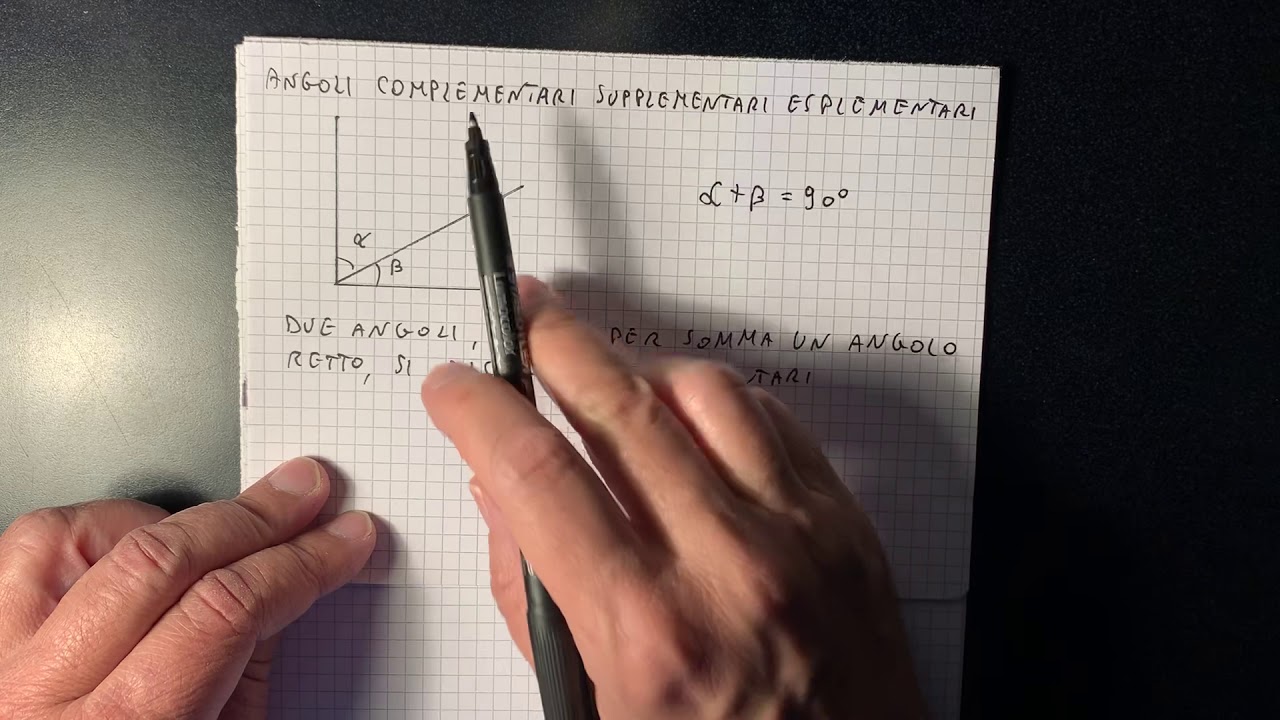 ANGOLI COMPLEMENTARI SUPPLEMENTARI ESPLEMENTARI
α + β = 90°
α
β
DUE ANGOLI, PER SOMMA UN ANGOLO
RETTO, SI